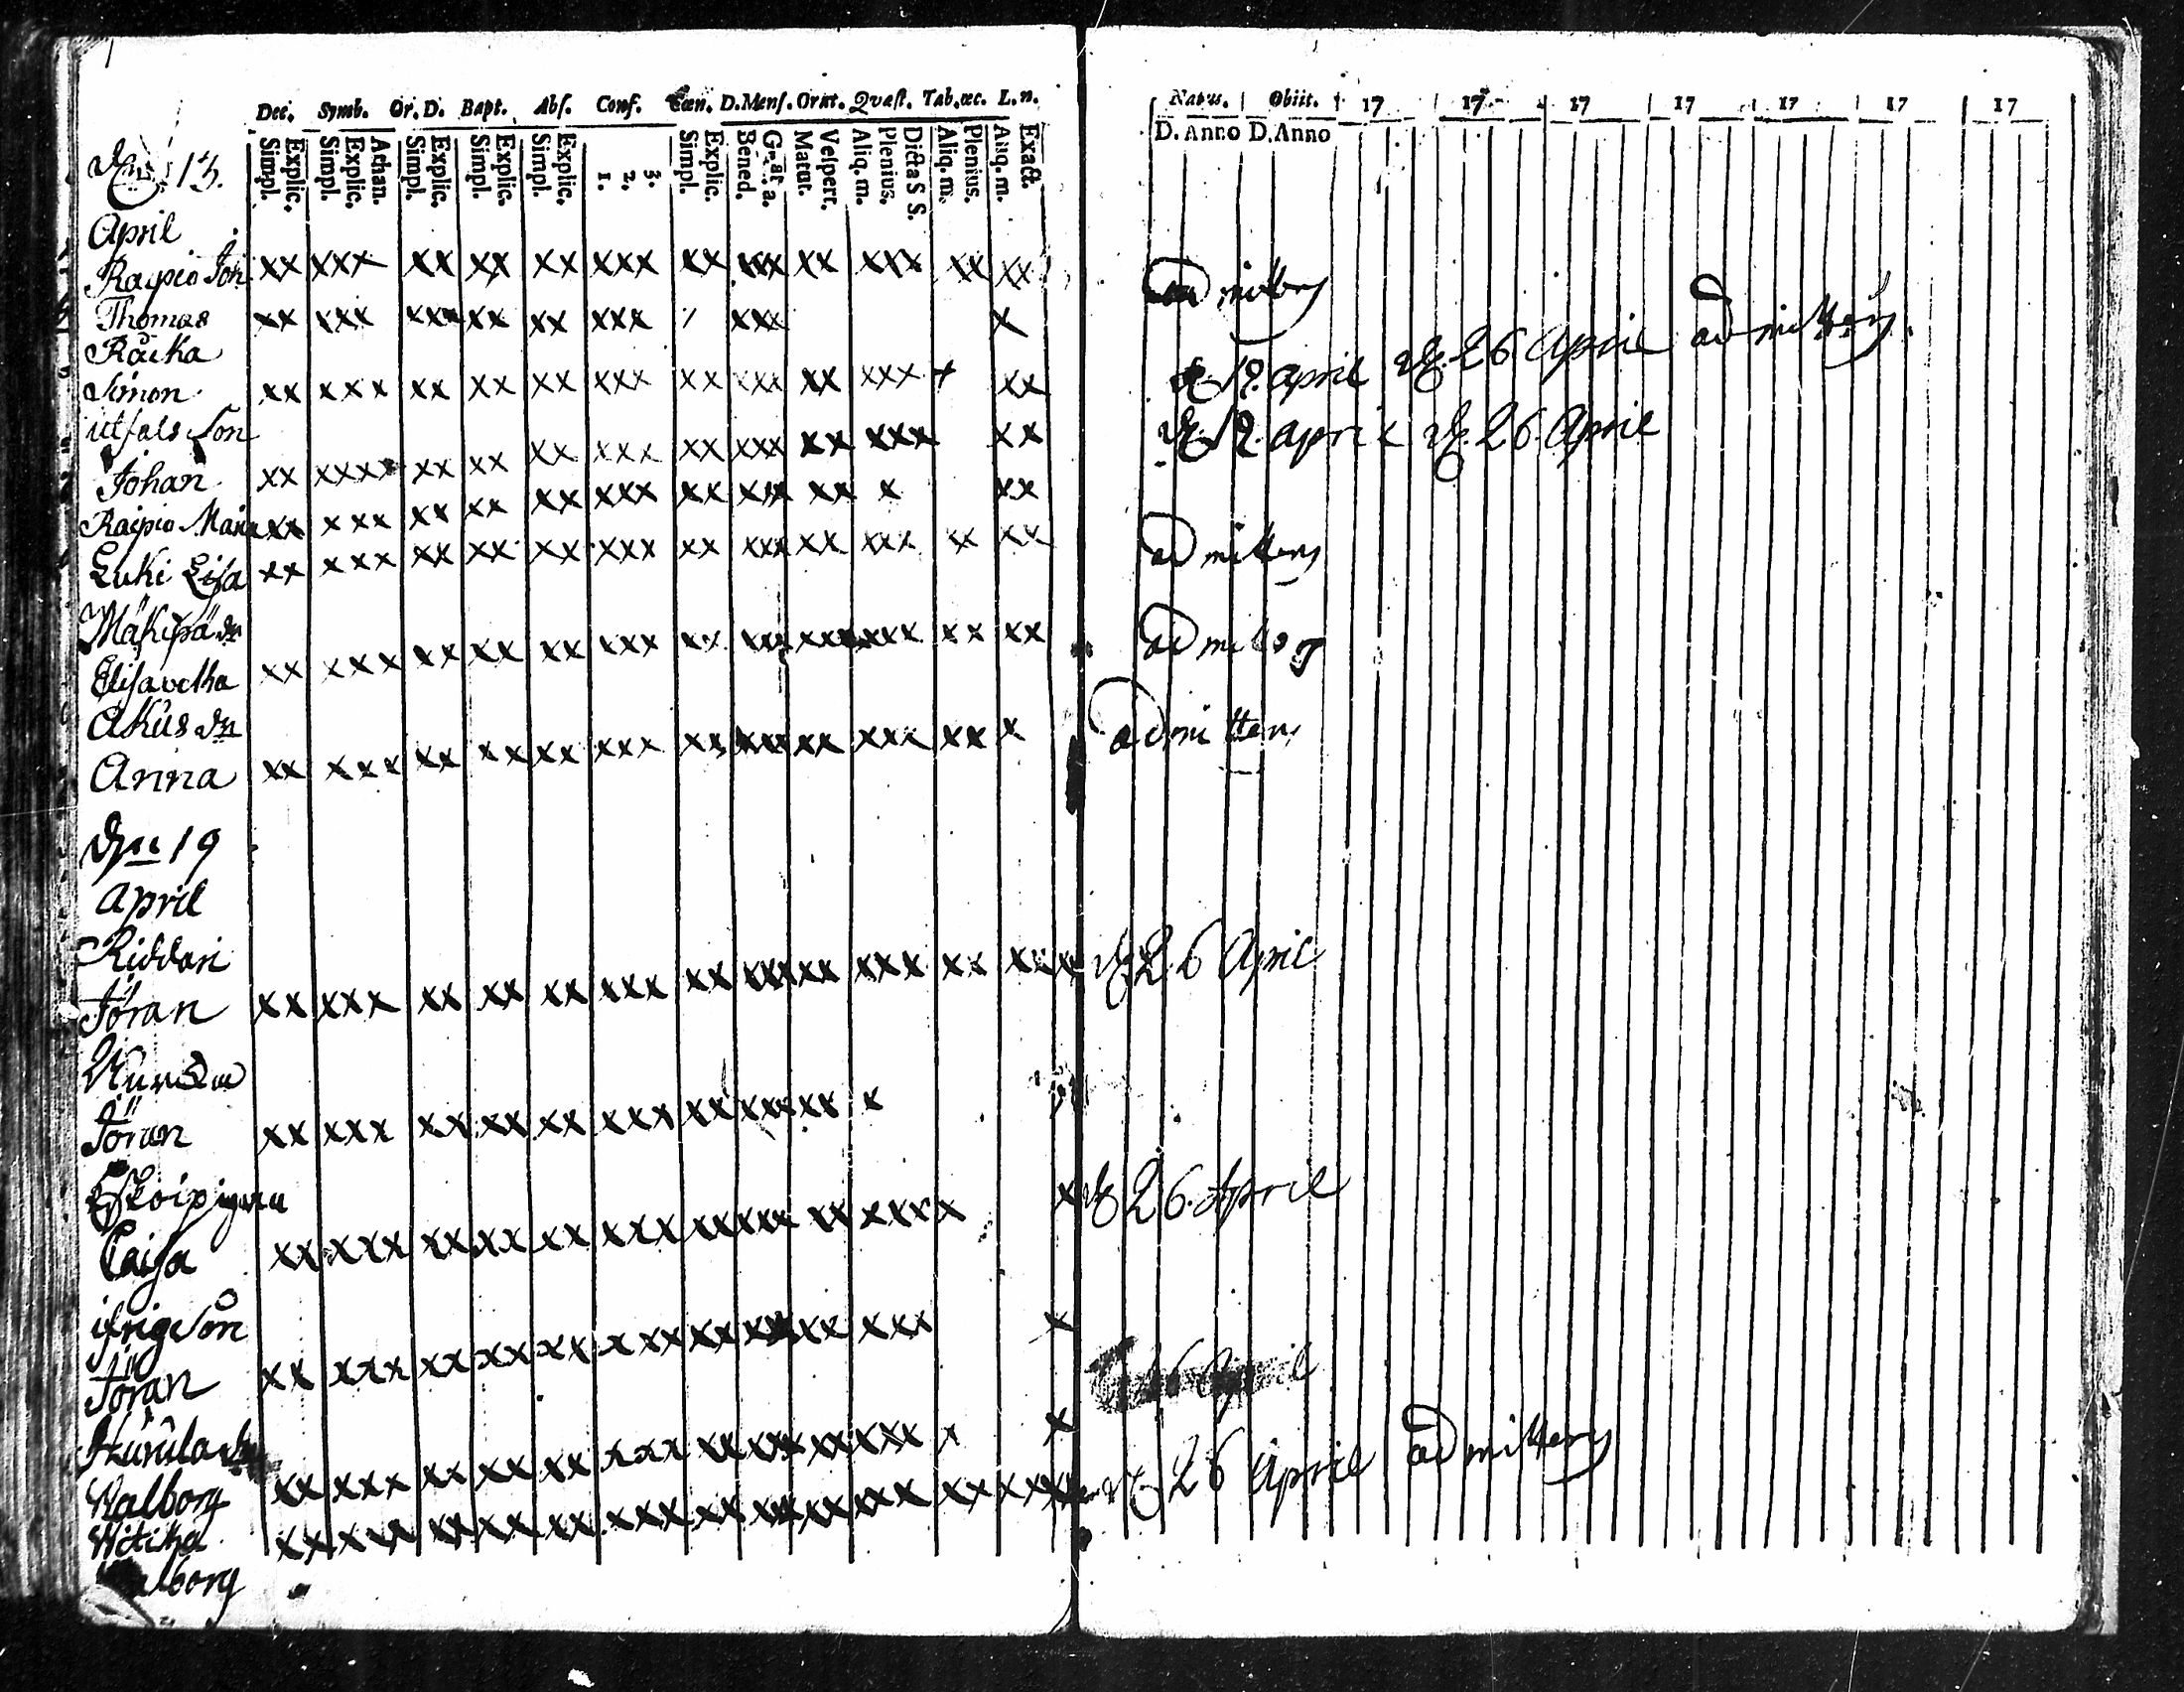 Dec. Symb. Or. D. Bapt. Abs. Conf. Cœn. D. Mens. Orat. Quæst. Tab. œc. L. n.
Simpl. Explic. Simpl. Explic. Athan. Simpl. Explic. Simpl. Explic. Simpl. Explic. 1. 2. 3. Simpl. Explic. Bened. Grat. a. Matut. Vespert. Aliq. m. Plenius. Dicta S S. Aliq. m. Plenius. Aliq. m. Exact.
13.
April
Raipio Joh xx xxx xx xx xx xxx xx xxx xx xxx xx xx
Thomas
Räika xx xxx xxx xx xx xxx / xxx x
Simon xx xxx xx xx xx xxx xx xxx xx xxx x xx
utfals Son
Johan xx xxxx xx xx xx xxx xx xxx xx xxx xx
Raipio Maria xx xxx xx xx xx xxx xx xxx xx x xx
Luki Lisa xx xxx xx xx xx xxx xx xxx xx xxx xx xx
Mäkipä dr
Elisavetha xx xxx xx xx xx xxx xx xxx xxx xxx xx xx
Akus dr
Anna xx xxx xx xx xx xxx xx xxx xx xxx xx x
Den 19
April
Riddari
Jöran xx xxx xx xx xx xxx xx xxx xx xxx xx xxxx
Jöran xx xxx xx xx xx xxx xx xxx xx x
Caisa xx xxx xx xx xx xxx xx xxx xx xxx x x
Son
Jöran xx xxx xx xx xx xxx xx xxx xx xxx x
Walborg xx xxx xx xx xx xxx xx xxx xx xxx x x
Witika
Walborg xx xxx xx xx xx xxx xx xxx xx xxx xx xxxx
Natus. Obiit. 17 17 17 17 17 17 17
D. Anno D. Anno
admitters
19. april 26 April admitters.
19. april 26. April
admitters
admitters
admitters
26 April
26. April
26 April
26 April admitters